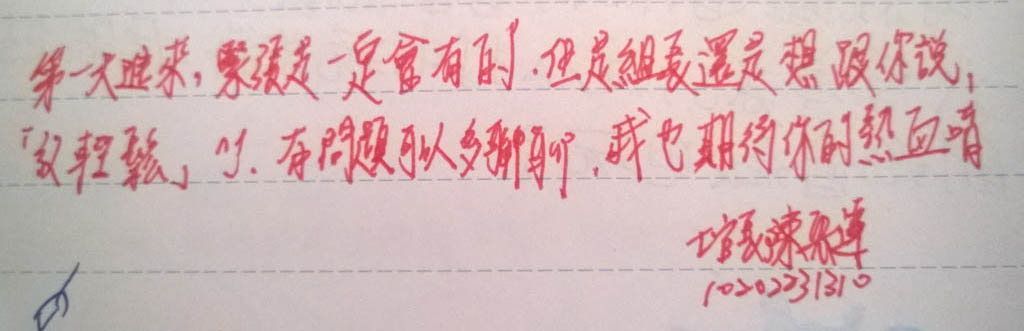 第一天進來,緊張是一定會有的.但是組長還是想跟你說,
「放輕鬆」.有問題可以多聊聊.我也期待你的熱血唷
長陳
10202231310